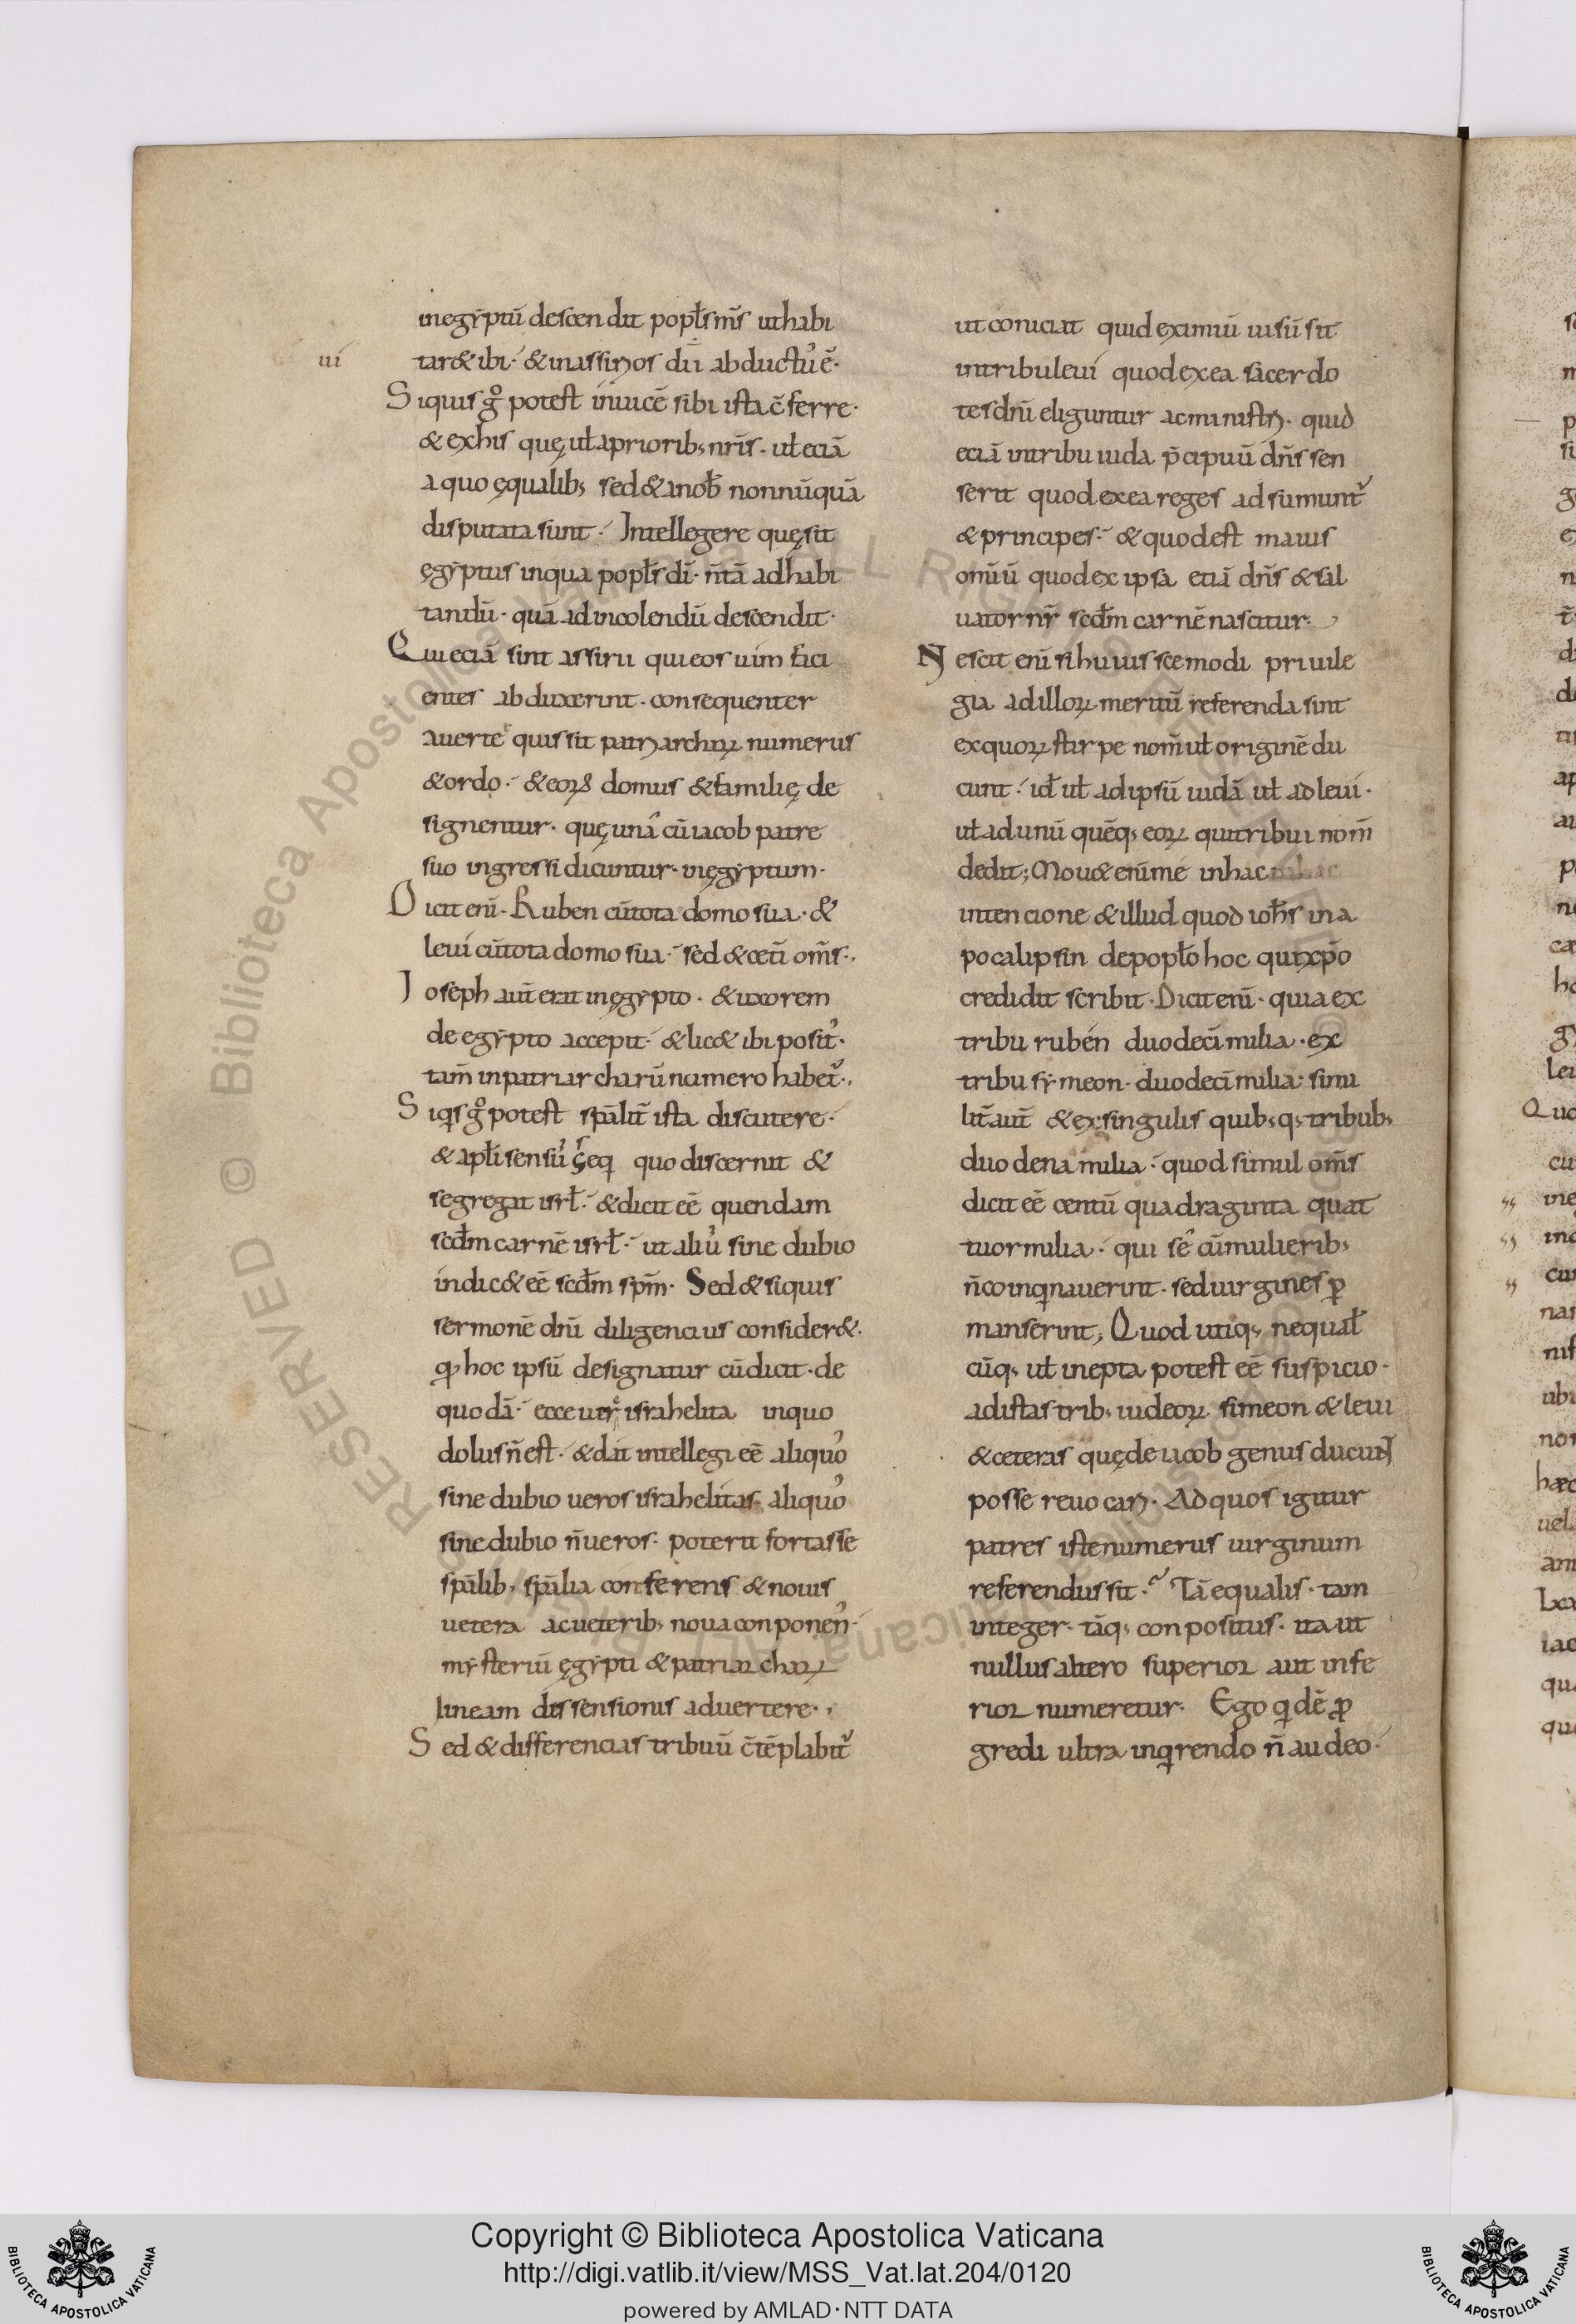 inegẏptū descendit popłs m̄s ut habi
tar& ibi· & inassirios dū ui abductuʼ ē·
ui
Siquis gͦ potest inuicē sibi ista c̄ferre·
& exhis quę uł aprioribꝫ nr̄is· uł eciā
a quo ęqualibꝫ sed & anob̄ nonnūquā
disputata sunt· Intellegere quę sit
ęgẏptus inqua popłs dī· n̄ tā adhabi
tandū· quā ad incolendū descendit·
Qui eciā sint assirii qui eos uim faci
entes abduxerint· consequenter
auerte quis sit patriarcharꝝ numerus
& ordo· & eorꝝ domus & familię de
signentur· quę unā cū iacob patre
suo ingressi dicuntur· inęgẏptum·
Dicit enī· Ruben cū tota domo sua· &
leui cū tota domo sua· sed & cet̄i om̄s·
Ioseph aut̄ erat inęgẏpto· & uxorem
de egẏpto accepit· & lic& ibi positʼ·
tam̄ inpatriarcharū numero habet᷑·
Siqͥs gͦ potest sp̄alit̄ ista discutere·
& apłi sensū seq̄ quo discernit &
segregat isrł· & dicit eē quendam
scd̄m carnē isrł· ut aliuʼ sine dubio
indic& eē scd̄m sp̄m· Sed & siquis
sermonē dnī diligencius consider&·
qꝫ hoc ipsū designatur cū dicit· de
quodā· ecce uere israhelita inquo
dolus n̄ est· & dat intellegi eē aliquoʼ
sine dubio ueros israhelitas· aliquoʼ
sine dubio n̄ ueros· poterit fortasse
sp̄alibꝫ sp̄alia conferens & nouis
uetera ac ueteribꝫ noua conponenʼ·
mẏsteriū ęgẏpti & patriarcharꝝ
lineam dissensionis aduertere·
Sed & differencias tribuū c̄tēplabit᷑
ut coniciat quid eximiū uisū sit
intribu leui quod exea sacerdo
tes dnī eliguntur ac ministri· quid
eciā intribu iuda p̄cipuū dn̄s sen
serit quod exea reges adsumunt᷑
& principes· & quod est maius
omīū quod ex ipsa etiā dn̄s & sal
uator nr̄ scd̄m carnē nascitur·
Nescit enī si huiuiscemodi priuile
gia ad illorꝝ meritū referenda sint
exquorꝝ stirpe nom̄ uł originē du
cunt· id̄ uł ad ipsū iudā uł ad leui·
uł ad unū quēqꝫ eorꝝ qui tribui nom̄
dedit; Mou& enim me inhac
intencione & illud quod ioh̄s ina
pocalipsin depopło hoc qui xp̄o
credidit scribit· Dicit enī· quia ex
tribu rubén duodecī milia· ex
tribu sẏmeon· duodecī milia· simi
lit̄ aut̄ & exsingulis quibꝫqꝫ tribubꝫ
duodena milia· quod simul om̄s
dicit eē centū quadraginta quat
tuor milia· qui se cū mulieribꝫ
n̄ coinqͥnauerint· sed uirgines ꝑ
manserint; Quod utiqꝫ nequał
cūqꝫ uł inepta potest eē suspicio·
adistas tribꝫ iudeorꝝ simeon & leui
& ceteras quę de iacob genus ducunt
posse reuocari· Ad quos igitur
patres iste numerus uirginum
referendus sit· Tā equalis· tam
integer· tāqꝫ conpositus· ita ut
nullus altero superior aut infe
rior numeretur· Ego qͥdē ꝓ
gredi ultra inqͥrendo n̄ audeo·
Copyright © Biblioteca Apostolica Vaticana
http://digi.vatlib.it/view/MSS_Vat.lat.204/0120
powered by AMLAD·NTT DATA